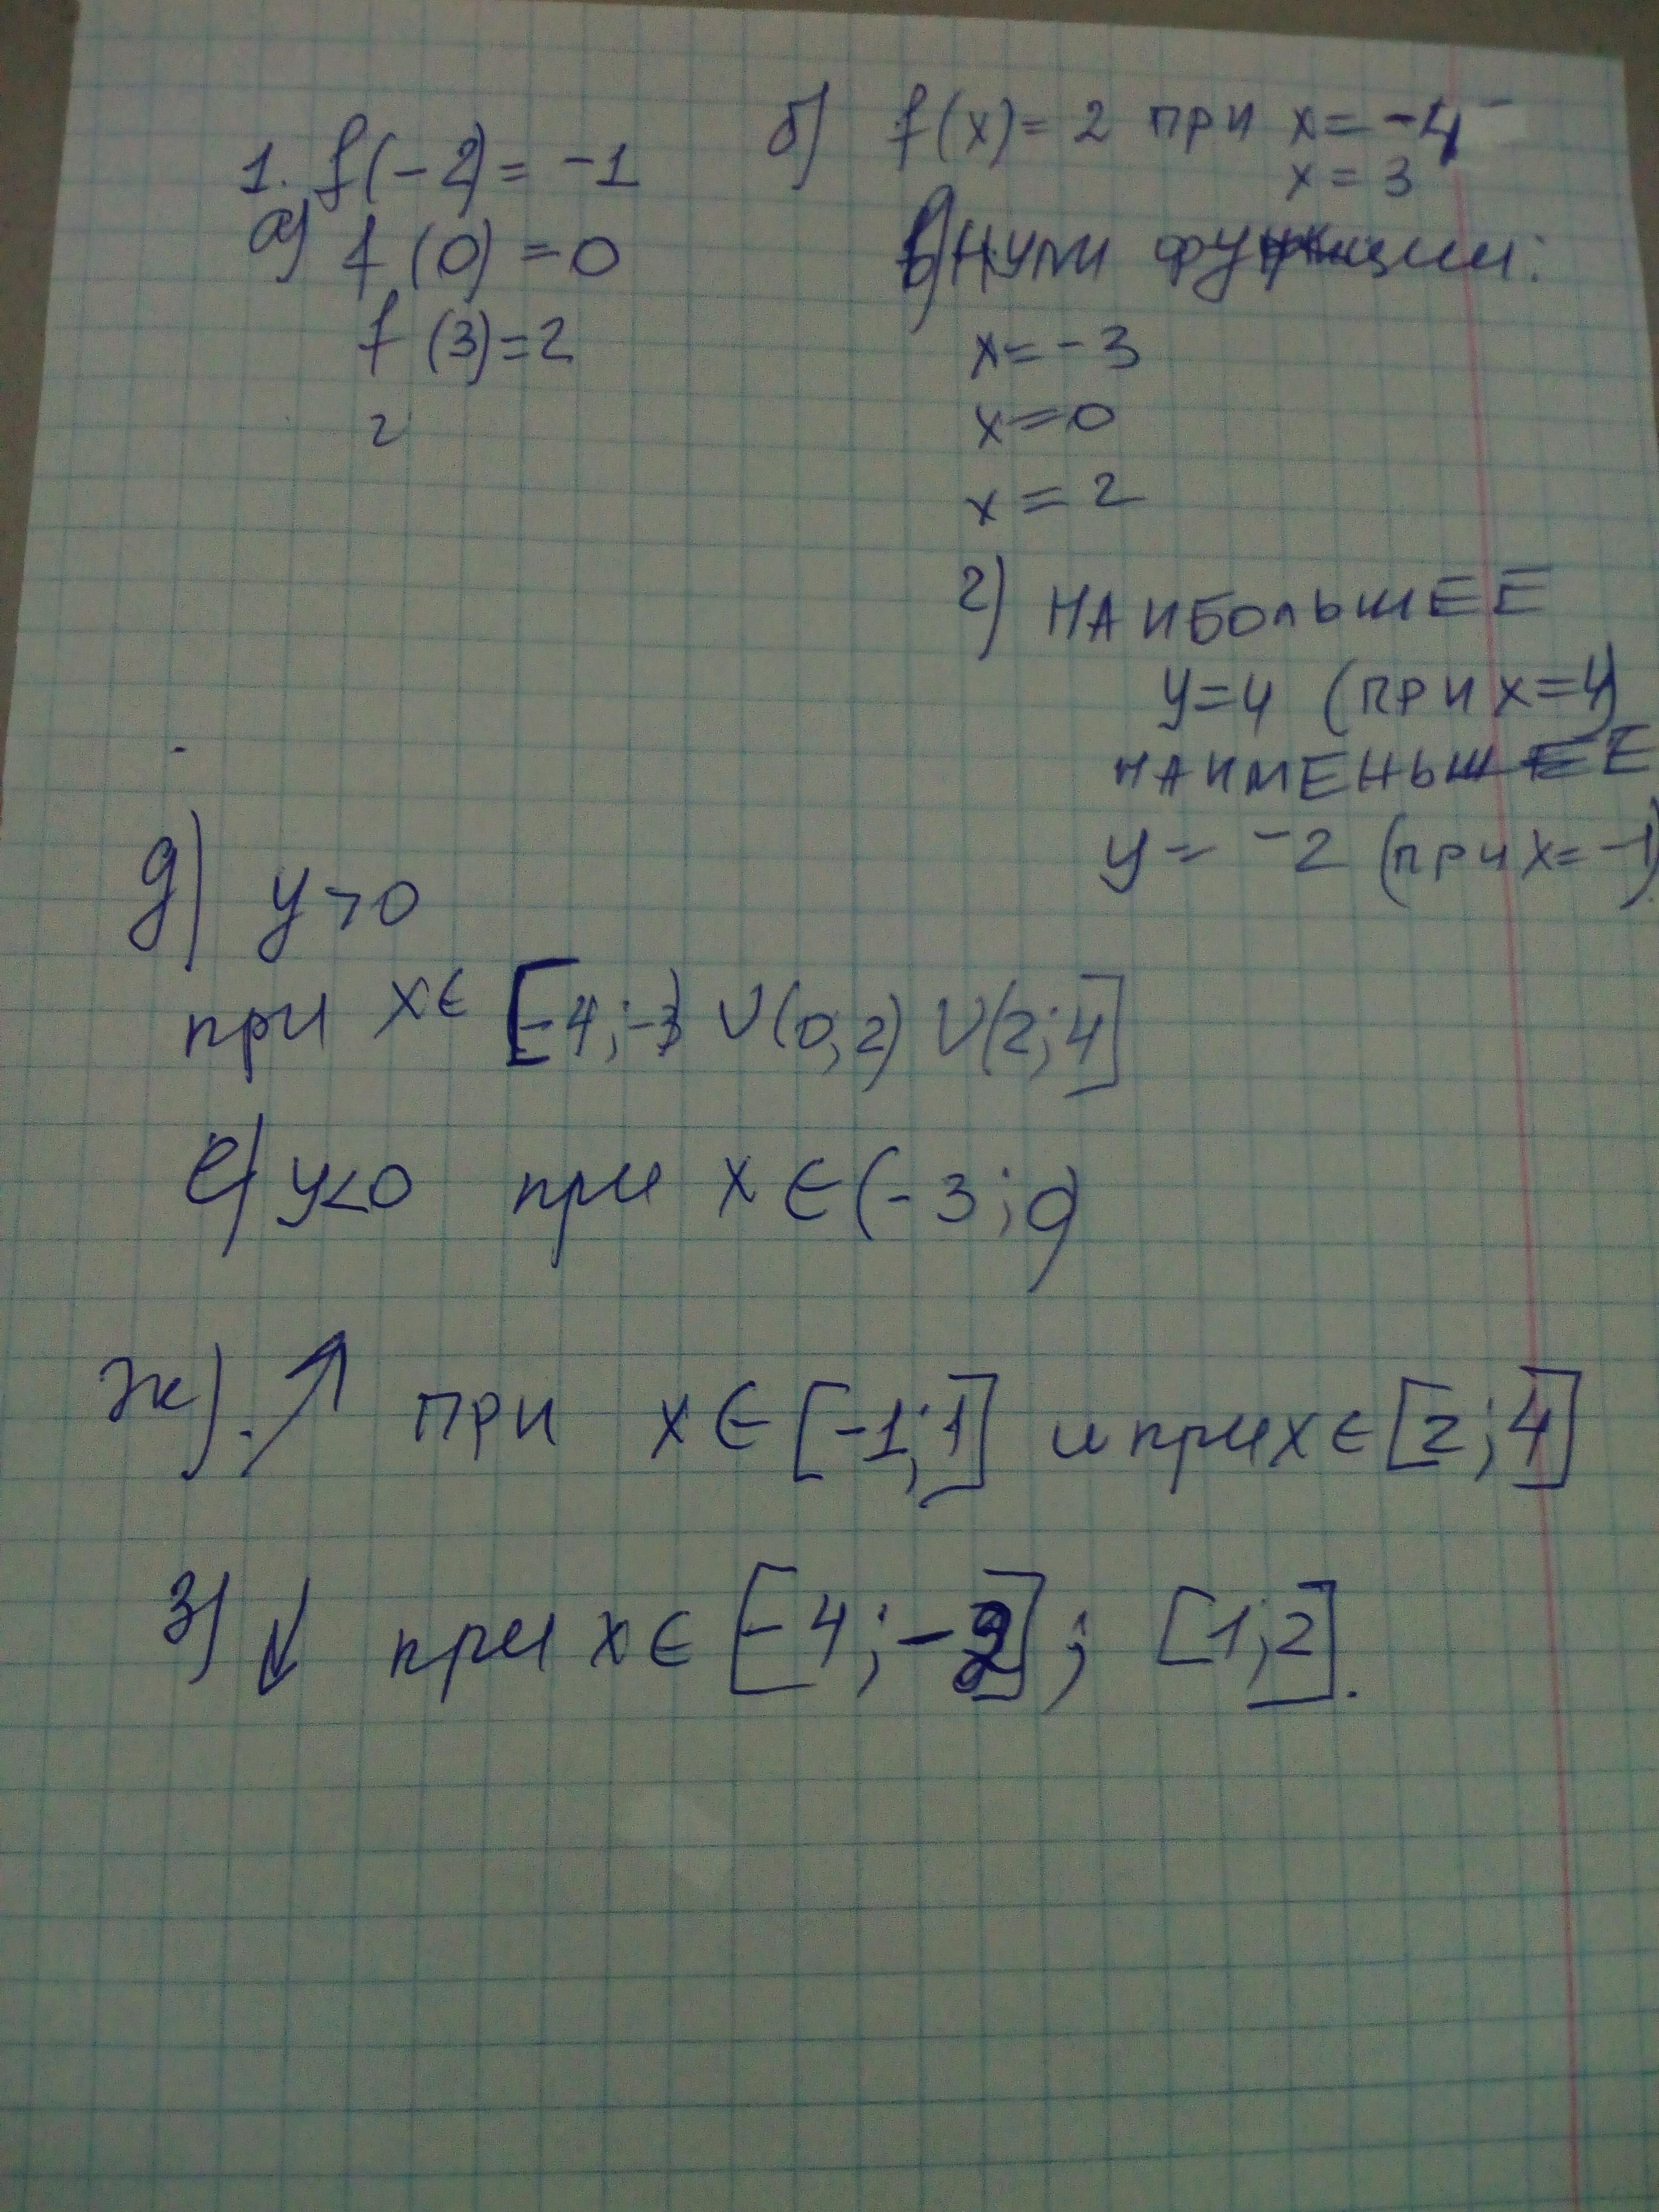 1. f(-2) = -1
а) f(0) = 0
f(3) = 2
г
б) f(x) = 2 при x = -4
x = 3
в) нули функции:
x = -3
x = 0
x = 2
г) НАИБОЛЬШЕЕ
y = 4 (при x = 4)
НАИМЕНЬШЕЕ
y = -2 (при x = -1)
д) y > 0
при x ∈ [-4; -3) ∪ (0; 2) ∪ (2; 4]
е) y < 0 при x ∈ (-3; 0)
ж) ↗ при x ∈ [-1; 1] и при x ∈ [2; 4]
з) ↓ при x ∈ [-4; -2]; [1; 2].